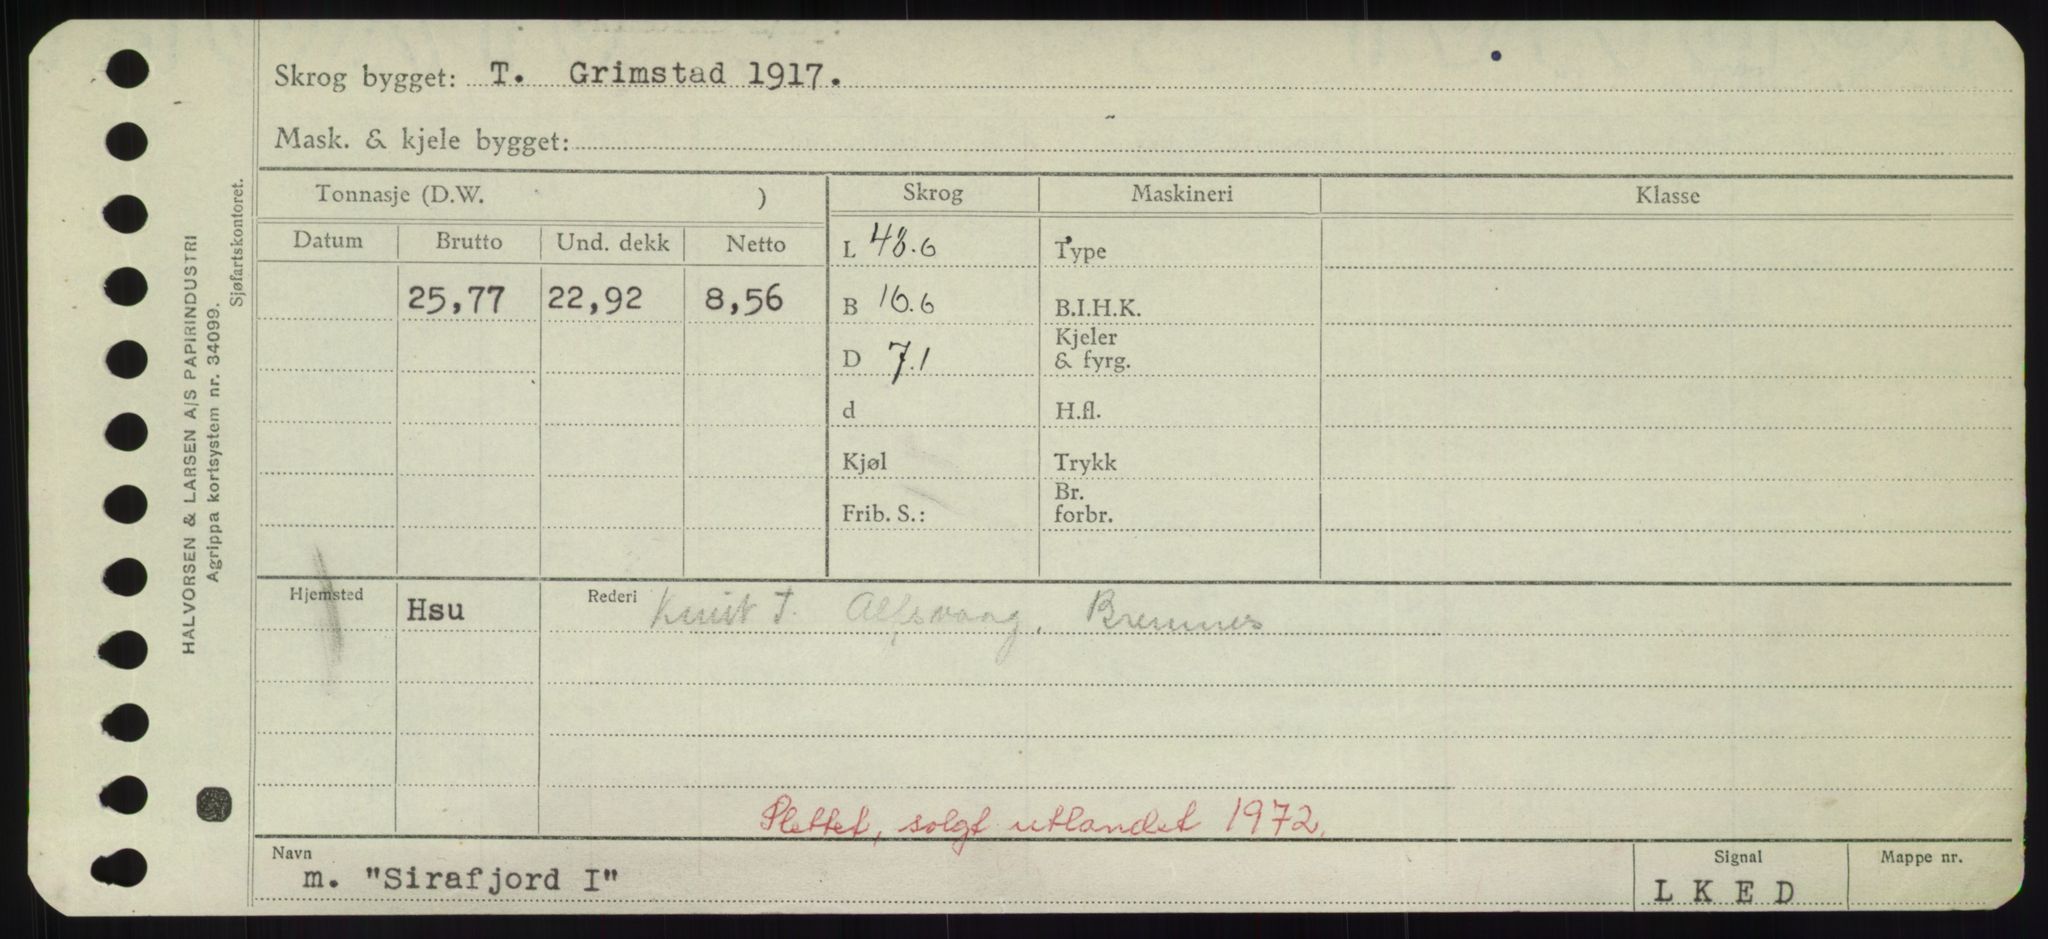 Skrog bygget: T. Grimstad 1917.
Mask. & kjele bygget:
Tonnasje (D.W. ) Skrog Maskineri Klasse
Datum Brutto Und. dekk Netto
L 48.6 Type
25,77 22,92 8,56
B 16.6 B.I.H.K.
D 7.1 Kjeler & fyrg.
d H.fl.
Kjøl Trykk
Frib. S.: Br. forbr.
Hjemsted Hsu Rederi Knut T. Alfsvaag, Bremnes
Slettet, solgt utlandet 1972.
Navn Signal Mappe nr.
m. "Sirafjord I" L K E D
HALVORSEN & LARSEN A/S PAPIRINDUSTRI
Agrippa kortsystem nr. 34099.
Sjøfartskontoret.